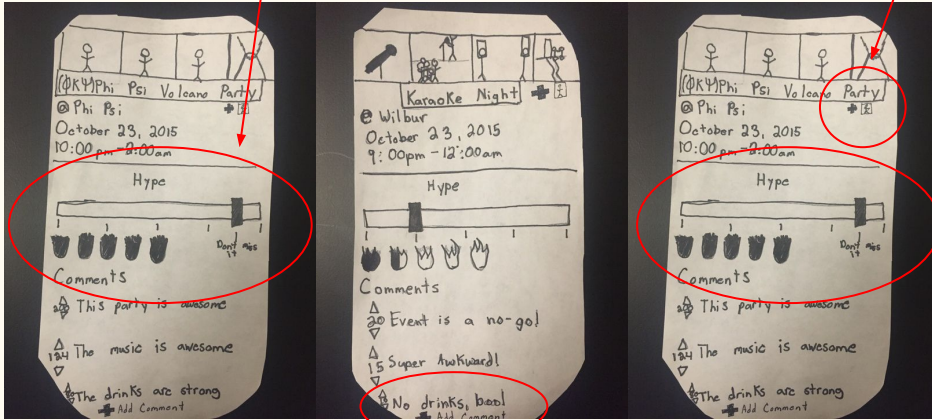 (ΦΚΨ)Phi Psi Volcano Party
@ Phi Psi
October 23, 2015
10:00pm-2:00am
Hype
Don't miss it
Comments
This party is awesome
124 The music is awesome
The drinks are strong
Add Comment
Karaoke Night
@ Wilbur
October 23, 2015
9:00pm-12:00am
Hype
Comments
20 Event is a no-go!
15 Super Awkward!
No drinks, boo!
Add Comment
(ΦΚΨ)Phi Psi Volcano Party
@ Phi Psi
October 23, 2015
10:00pm-2:00am
Hype
Don't miss it
Comments
This party is awesome
124 The music is awesome
The drinks are strong
Add Comment